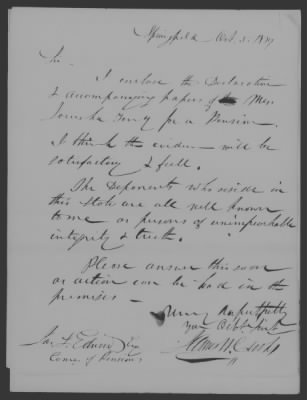 Springfield Oct. 5. 18
Sir
I enclose the Declaration
& accompanying papers of Mrs
Jerusha for a Pension.
I think the evidence will be
satisfactory & full.
The Deponents who reside in
this State are all well known
to me as persons of unimpeachable
integrity & truth.
Please answer this soon
as action can be had in the
premises —
Very Respectfully
Your Obdt Servt
James L. Edwards Esq
Comr of Pensions